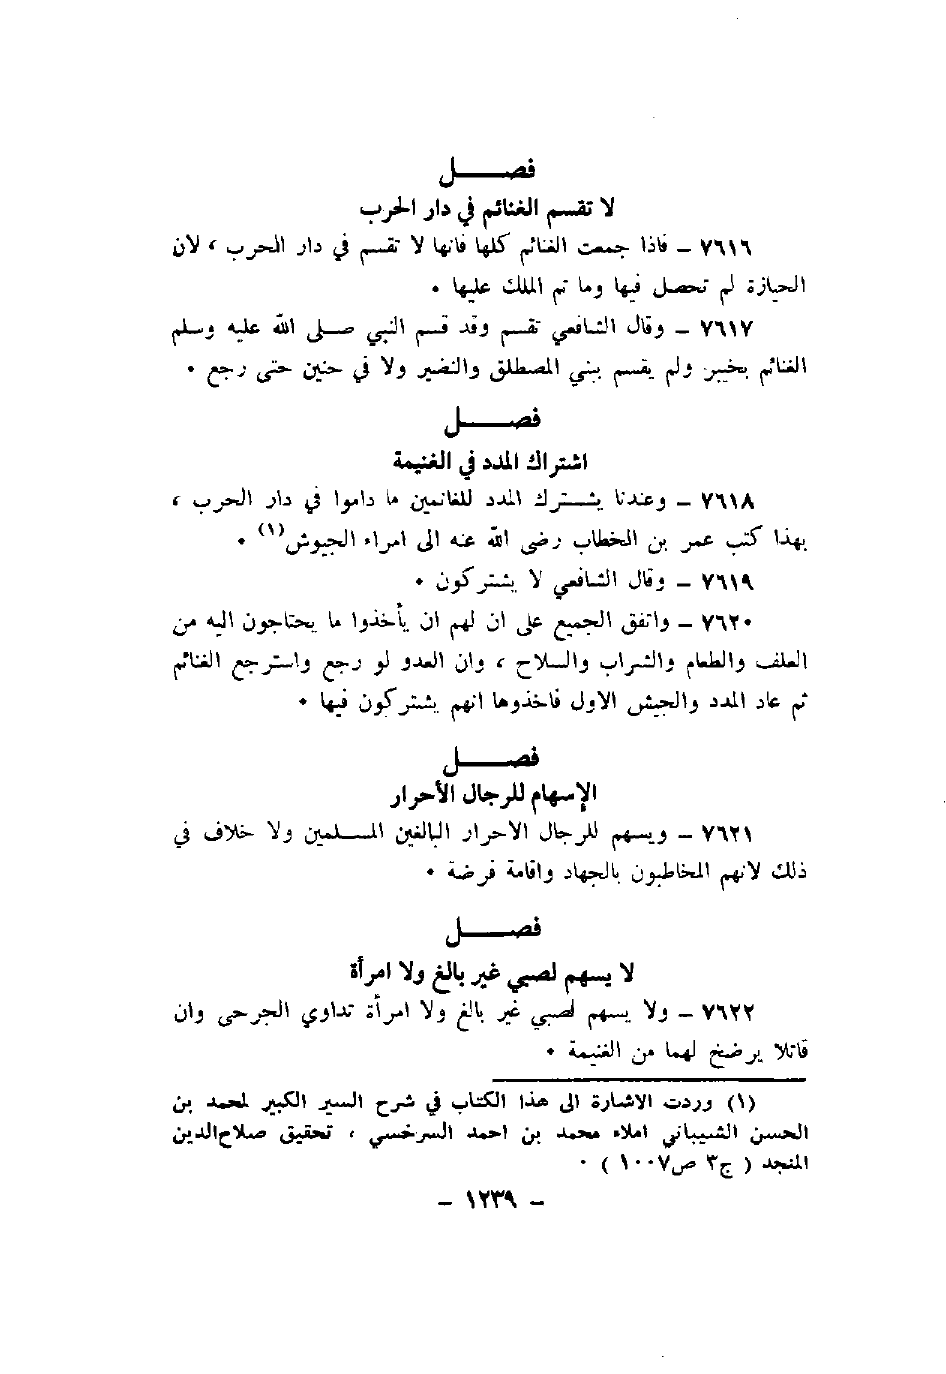 فصــــل
لا تقسم الغنائم في دار الحرب
٧٦١٦ – فاذا جمعت الغنائم كلها فانها لا تقسم في دار الحرب ، لان
الحيازة لم تحصل فيها وما تم الملك عليها ٠
٧٦١٧ – وقال الشافعي تقسم وقد قسم النبي صلى الله عليه وسلم
الغنائم بخيبر ولم يقسم ببني المصطلق والنضير ولا في حنين حتى رجع ٠
فصــــل
اشتراك المدد في الغنيمة
٧٦١٨ – وعندنا يشترك المدد للغانمين ما داموا في دار الحرب ،
بهذا كتب عمر بن الخطاب رضى الله عنه الى امراء الجيوش(١) ٠
٧٦١٩ – وقال الشافعي لا يشتركون ٠
٧٦٢٠ – واتفق الجميع على ان لهم ان يأخذوا ما يحتاجون اليه من
العلف والطعام والشراب والسلاح ، وان العدو لو رجع واسترجع الغنائم
ثم عاد المدد والجيش الاول فاخذوها انهم يشتركون فيها ٠
فصــــل
الإسهام للرجال الأحرار
٧٦٢١ – ويسهم للرجال الاحرار البالغين المسلمين ولا خلاف في
ذلك لانهم المخاطبون بالجهاد واقامة فرضة ٠
فصــــل
لا يسهم لصبي غير بالغ ولا امرأة
٧٦٢٢ – ولا يسهم لصبي غير بالغ ولا امرأة تداوي الجرحى وان
قاتلا يرضخ لهما من الغنيمة ٠
(١) وردت الاشارة الى هذا الكتاب في شرح السير الكبير لمحمد بن
الحسن الشيباني املاء محمد بن احمد السرخسي ، تحقيق صلاح‌الدين
المنجد ( ج٣ ص١٠٠٧ ) ٠
– ١٢٣٩ –